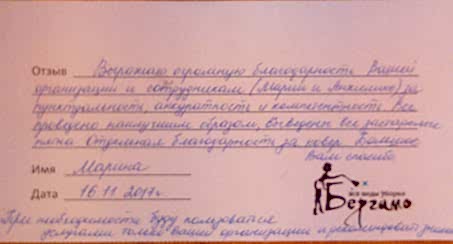 Отзыв Выражаю огромную благодарность Вашей
организации и сотрудникам (Марии и Анжелике) за
пунктуальность, аккуратность и компетентность. Все
проведено наилучшим образом, выведены все застарелые
пятна. Отдельная благодарность за ковер. Большое
Вам спасибо
Имя Марина
Дата 16.11 2017г
все виды уборки
Бергамо
При необходимости буду пользоваться
услугами только вашей организации и рекомендовать